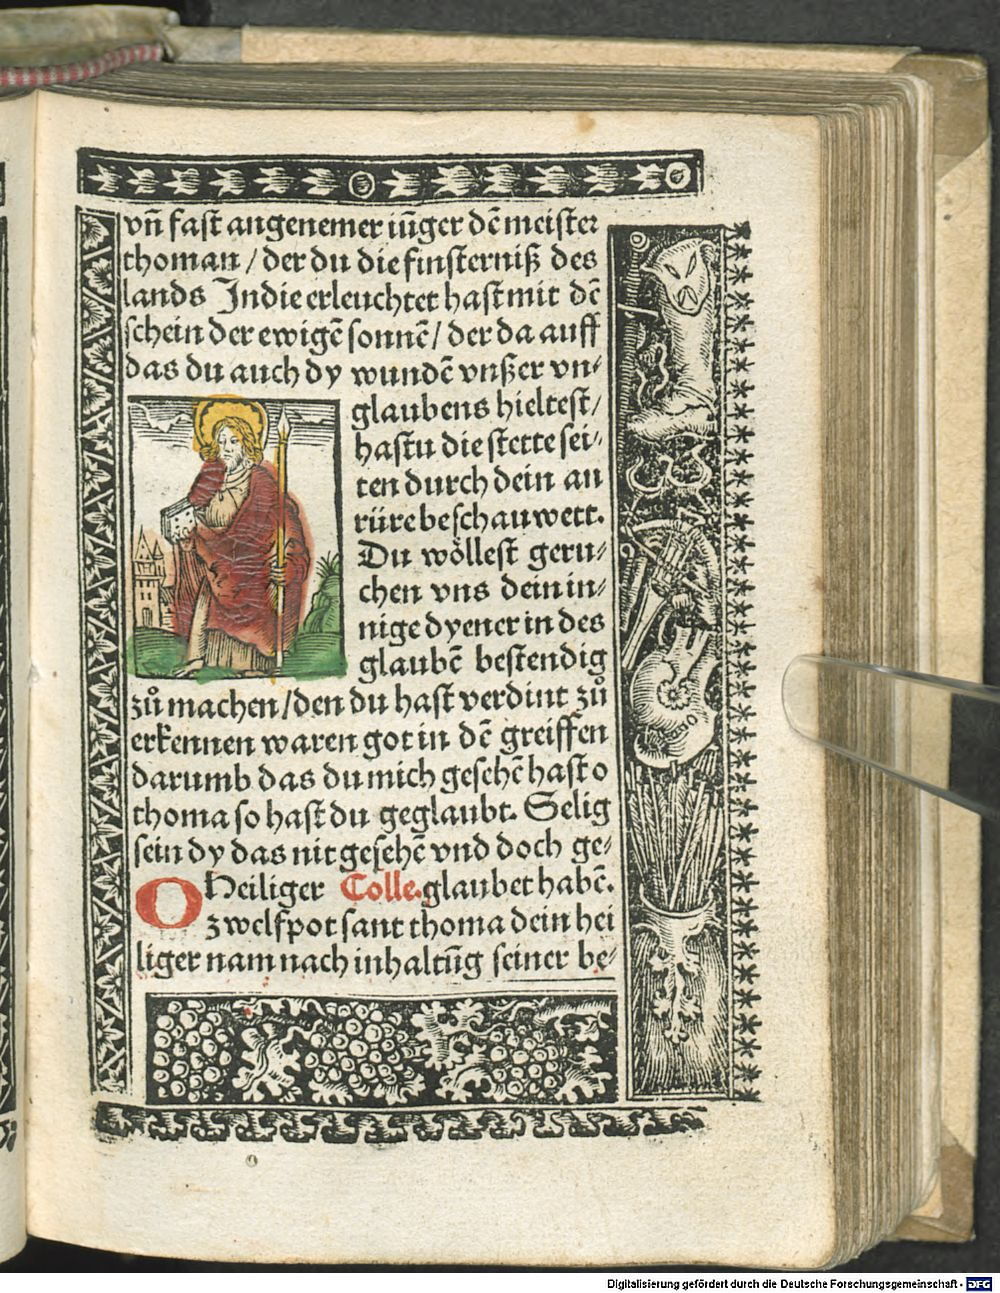 vñ fast angenemer iũger dẽ meister
thoman / der du die finsterniß des
lands Indie erleuchtet hast mit dẽ
schein der ewigẽ sonnẽ / der da auff
das du auch dy wundẽ vnßer vn⸗
glaubens hieltest /
hastu die stette sei⸗
ten durch dein an
rüre beschauwett.
Du wöllest geru⸗
chen vns dein in⸗
nige dyener in des
glaubẽ bestendig
zuͦ machen / den du hast verdint zuͦ
erkennen waren got in dẽ greiffen
darumb das du mich gesehẽ hast o
thoma so hast du geglaubt. Selig
sein dy das nit gesehẽ vnd doch ge⸗
O Heiliger Colle. glaubet habẽ.
zwelfpot sant thoma dein hei
liger nam nach inhaltũg seiner be⸗
Digitalisierung gefördert durch die Deutsche Forschungsgemeinschaft - DFG